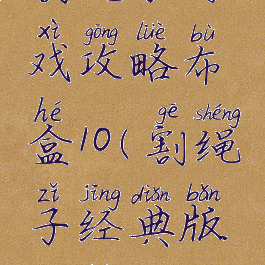 xì gōng lüè bù
戏攻略布
hé gē shéng
盒10(割绳
zǐ jīng diǎn bǎn
子经典版